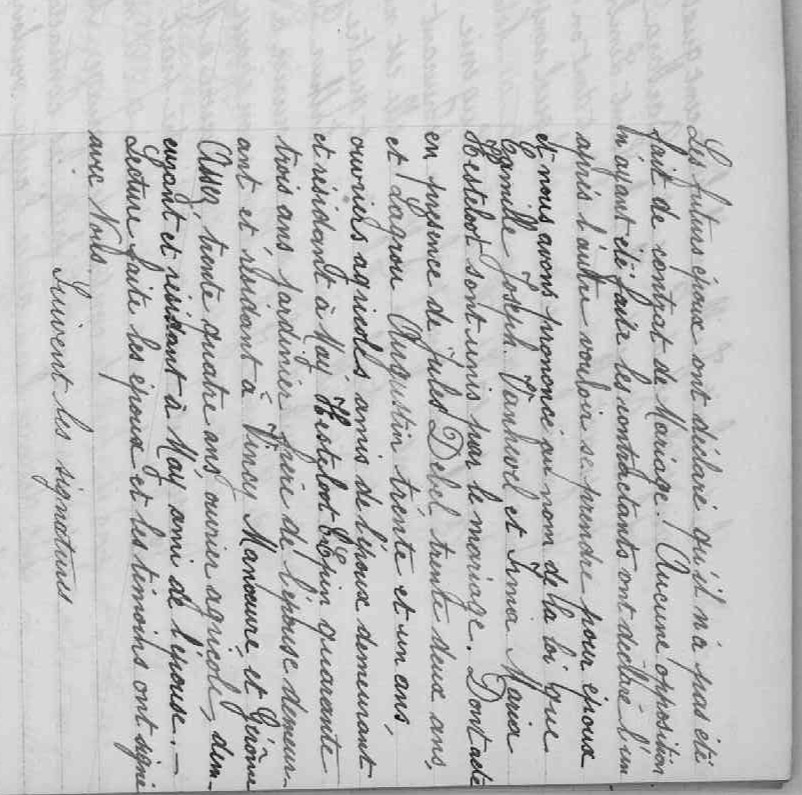 Les futurs époux ont déclaré qu'il n'a pas été
fait de contrat de Mariage. Aucune opposition
n'ayant été faite les contractants ont déclaré l'un
après l'autre vouloir se prendre pour époux
et nous avons prononcé au nom de la loi que
Camille Joseph Vanhevel et Irma Maria
Hesteloot sont unis par le mariage. Dont acte
en présence de Jules Debel trente deux ans,
et Lagrou Augustin trente et un ans,
ouvriers agricoles amis de l'époux demeurant
et résidant à May Hesteloot Crépin quarante
trois ans jardinier frère de l'épouse demeur-
ant et résidant à Vincy Manoeuvre et Gérôme
trente quatre ans ouvrier agricole, dem-
eurant et résidant à May ami de l'épouse. —
Lecture faite les époux et les témoins ont signé
avec Nous.
Suivent les signatures